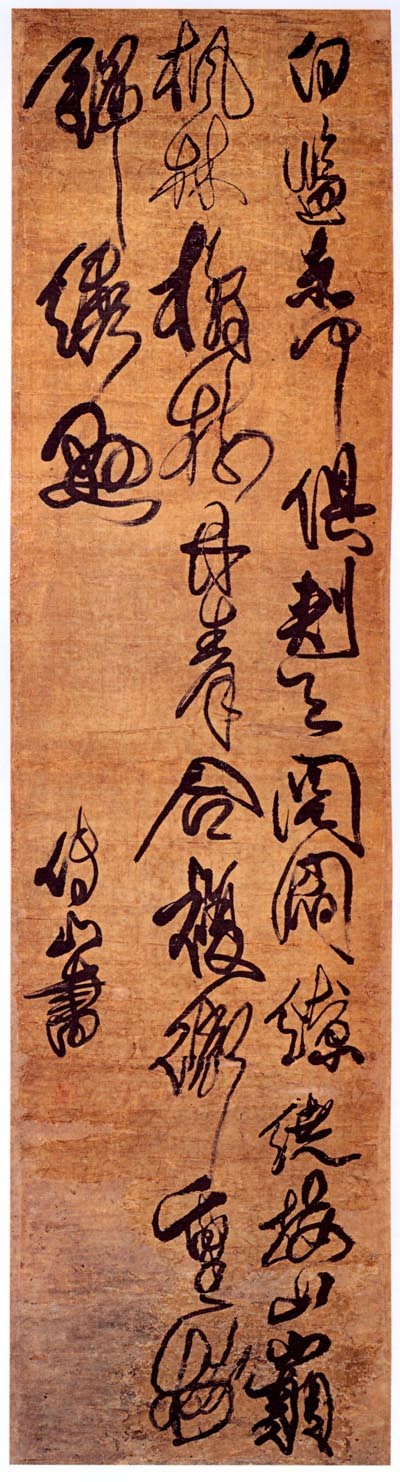 白鹽赤甲俱刺天閭閻繚繞接山巔
楓林橘樹丹青合複道重樓
錦繡懸
傅山書